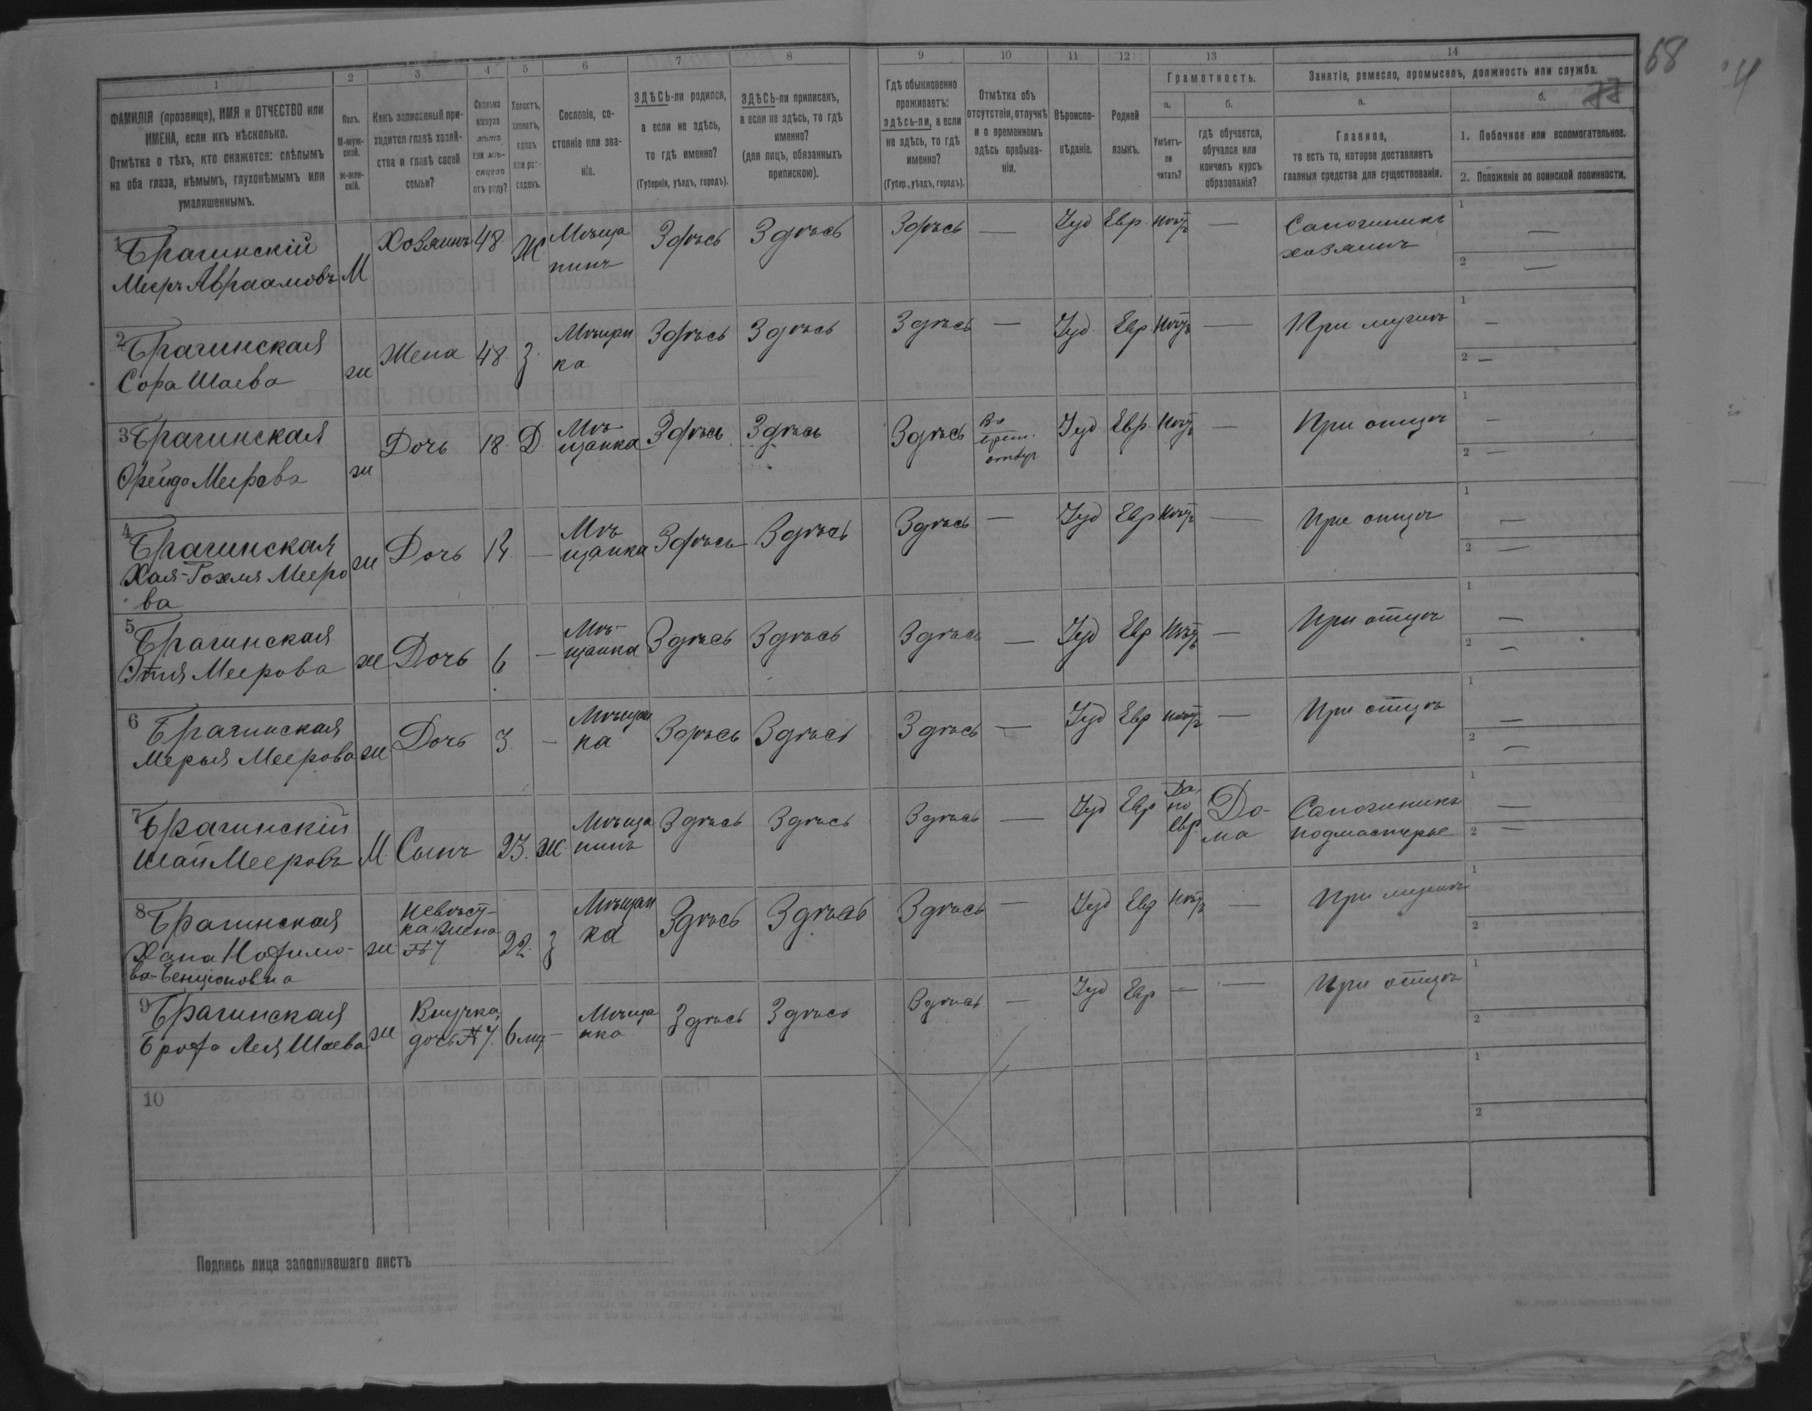 68
1 2 3 4 5 6 7 8 9 10 11 12 13 14
ФАМИЛІЯ (прозвище), ИМЯ и ОТЧЕСТВО или
ИМЕНА, если ихъ нѣсколько.
Отмѣтка о тѣхъ, кто окажется: слѣпымъ
на оба глаза, нѣмымъ, глухонѣмымъ или
умалишеннымъ.
Полъ.
М-муж-
ской.
Ж-жен-
скій.
Какъ записанный при-
ходится главѣ хозяй-
ства и главѣ своей
семьи?
Сколько
минуло
лѣтъ
или мѣ-
сяцевъ
отъ роду?
Холостъ,
женатъ,
вдовъ
или раз-
веденъ.
Сословіе, со-
стояніе или зва-
ніе.
ЗДѢСЬ-ли родился,
а если не здѣсь,
то гдѣ именно?
(Губернія, уѣздъ, городъ).
ЗДѢСЬ-ли приписанъ,
а если не здѣсь, то гдѣ
именно?
(для лицъ, обязанныхъ
припискою).
Гдѣ обыкновенно
проживаетъ:
здѣсь-ли, а если
не здѣсь, то гдѣ
именно?
(Губер., уѣздъ, городъ).
Отмѣтка объ
отсутствіи, отлучкѣ
и о временномъ
здѣсь пребыва-
ніи.
Вѣроиспо-
вѣданіе.
Родной
языкъ.
Грамотность.
а.
Умѣетъ-
ли
читать?
б.
гдѣ обучается,
обучался или
кончилъ курсъ
образованія?
Занятія, ремесло, промыселъ, должность или служба.
а.
Главное,
то есть то, которое доставляетъ
главныя средства для существованія.
б.
1. Побочное или вспомогательное.
2. Положеніе по воинской повинности.
1 Брагинскій
Мееръ Авраамовъ М Хозяинъ 48 Ж Мѣща
нинъ Здѣсь Здѣсь Здѣсь — Іуд Евр. нѣтъ — Сапожникъ
хозяинъ 1 — 2 —
2 Брагинская
Сора Шаева ж Жена 48 З. Мѣщан
ка Здѣсь Здѣсь Здѣсь — Іуд. Евр. нѣтъ — При мужѣ 1 — 2 —
3 Брагинская
Фрейда Меерова ж Дочь 18. Д. Мѣ-
щанка Здѣсь Здѣсь Здѣсь Іуд Евр. нѣтъ — При отцѣ 1 — 2 —
4 Брагинская
Хая-Рохля Мееро
ва ж Дочь — Мѣ
щанка Здѣсь Здѣсь Здѣсь — Іуд Евр нѣтъ — При отцѣ 1 — 2 —
5 Брагинская
Этля Меерова ж Дочь 6 — Мѣ-
щанка Здѣсь Здѣсь Здѣсь — Іуд Евр нѣтъ — При отцѣ 1 — 2 —
6 Брагинская
Мерыя Меерова ж Дочь 3 — Мѣщан
ка Здѣсь Здѣсь Здѣсь — Іуд Евр нѣтъ — При отцѣ 1 — 2 —
7 Брагинскій
Шай Мееровъ М. Сынъ 23. Ж Мѣща
нинъ Здѣсь Здѣсь Здѣсь — Іуд Евр Да,
по
евр До-
ма Сапожникъ
подмастерье 1 — 2 —
8 Брагинская
Хана
ва-Бенціоновна ж. Невѣст-
ка жена
№7 22. З Мѣщан
ка Здѣсь Здѣсь Здѣсь — Іуд Евр нѣтъ — При мужѣ 1 2
9 Брагинская
Лея Шаева ж Внучка,
дочь №7. Мѣща
нка Здѣсь Здѣсь Здѣсь — Іуд Евр — — При отцѣ 1 2
10 1 2
Подпись лица заполнявшаго листъ